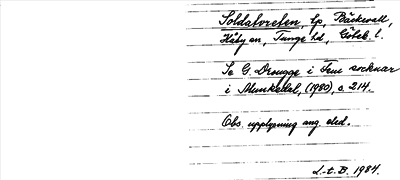 Soldatroten, lp, Bäckevall,
Håby sn, Tunge hd, Göteb. l.
Se G. Drougge i Fem socknar
i Munkedal, (1980), s. 214.
Obs. upplysning ang. eled.
L-t. B. 1984.